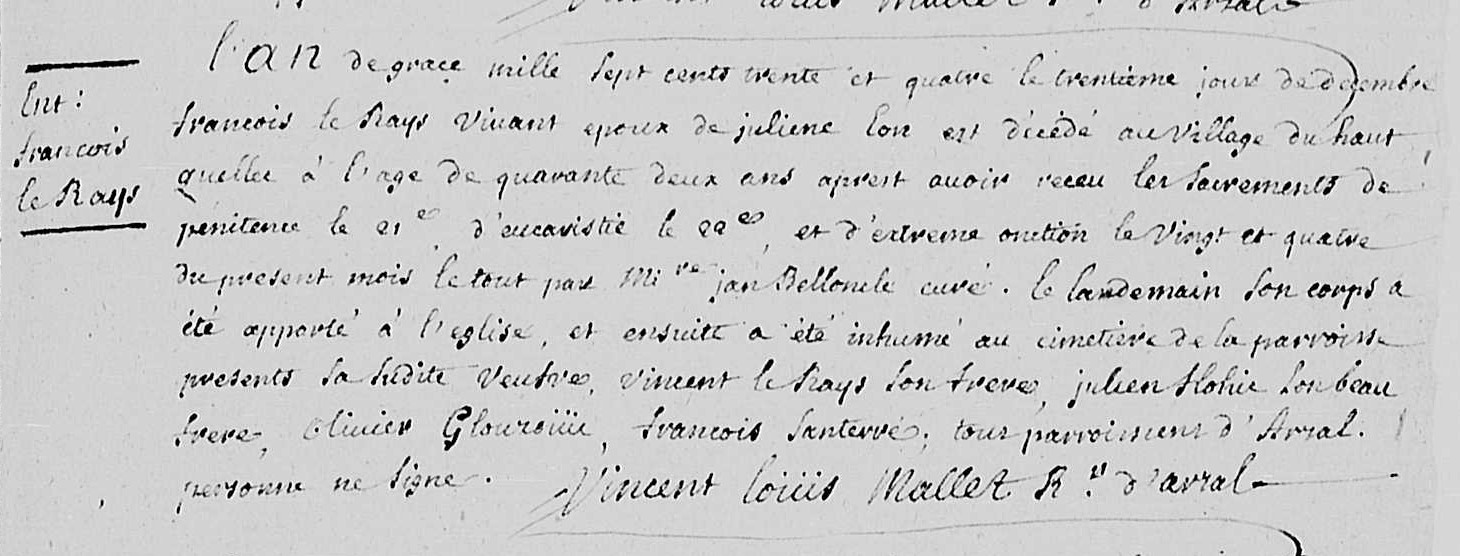 Vincent Louis Mallet R.r d'Arzal
l'an de grace mille sept cents trente et quatre le trentieme jour de decembre
Ent:
francois
le Rays
francois le Rays vivant epoux de juliene Lon est décédé au village du haut
quellec à l'age de quarante deux ans aprest avoir receu les sacrements de
penitence le 21e, d'eucaristie le 22e, et d'extreme onction le vingt et quatre
du present mois le tout par Mire jan Bellonele curé. le landemain son corps a
été apporté à l'eglise, et ensuite a été inhumé au cimetiere de la parroisse
presents sa sudite veufve, vincent le Rays son frere, julien Hohic son beau
frere, olivier Glouroüic, francois santerre, tous parroissiens d'Arzal.
personne ne signe. Vincent Loüis Mallet R.r d'arzal